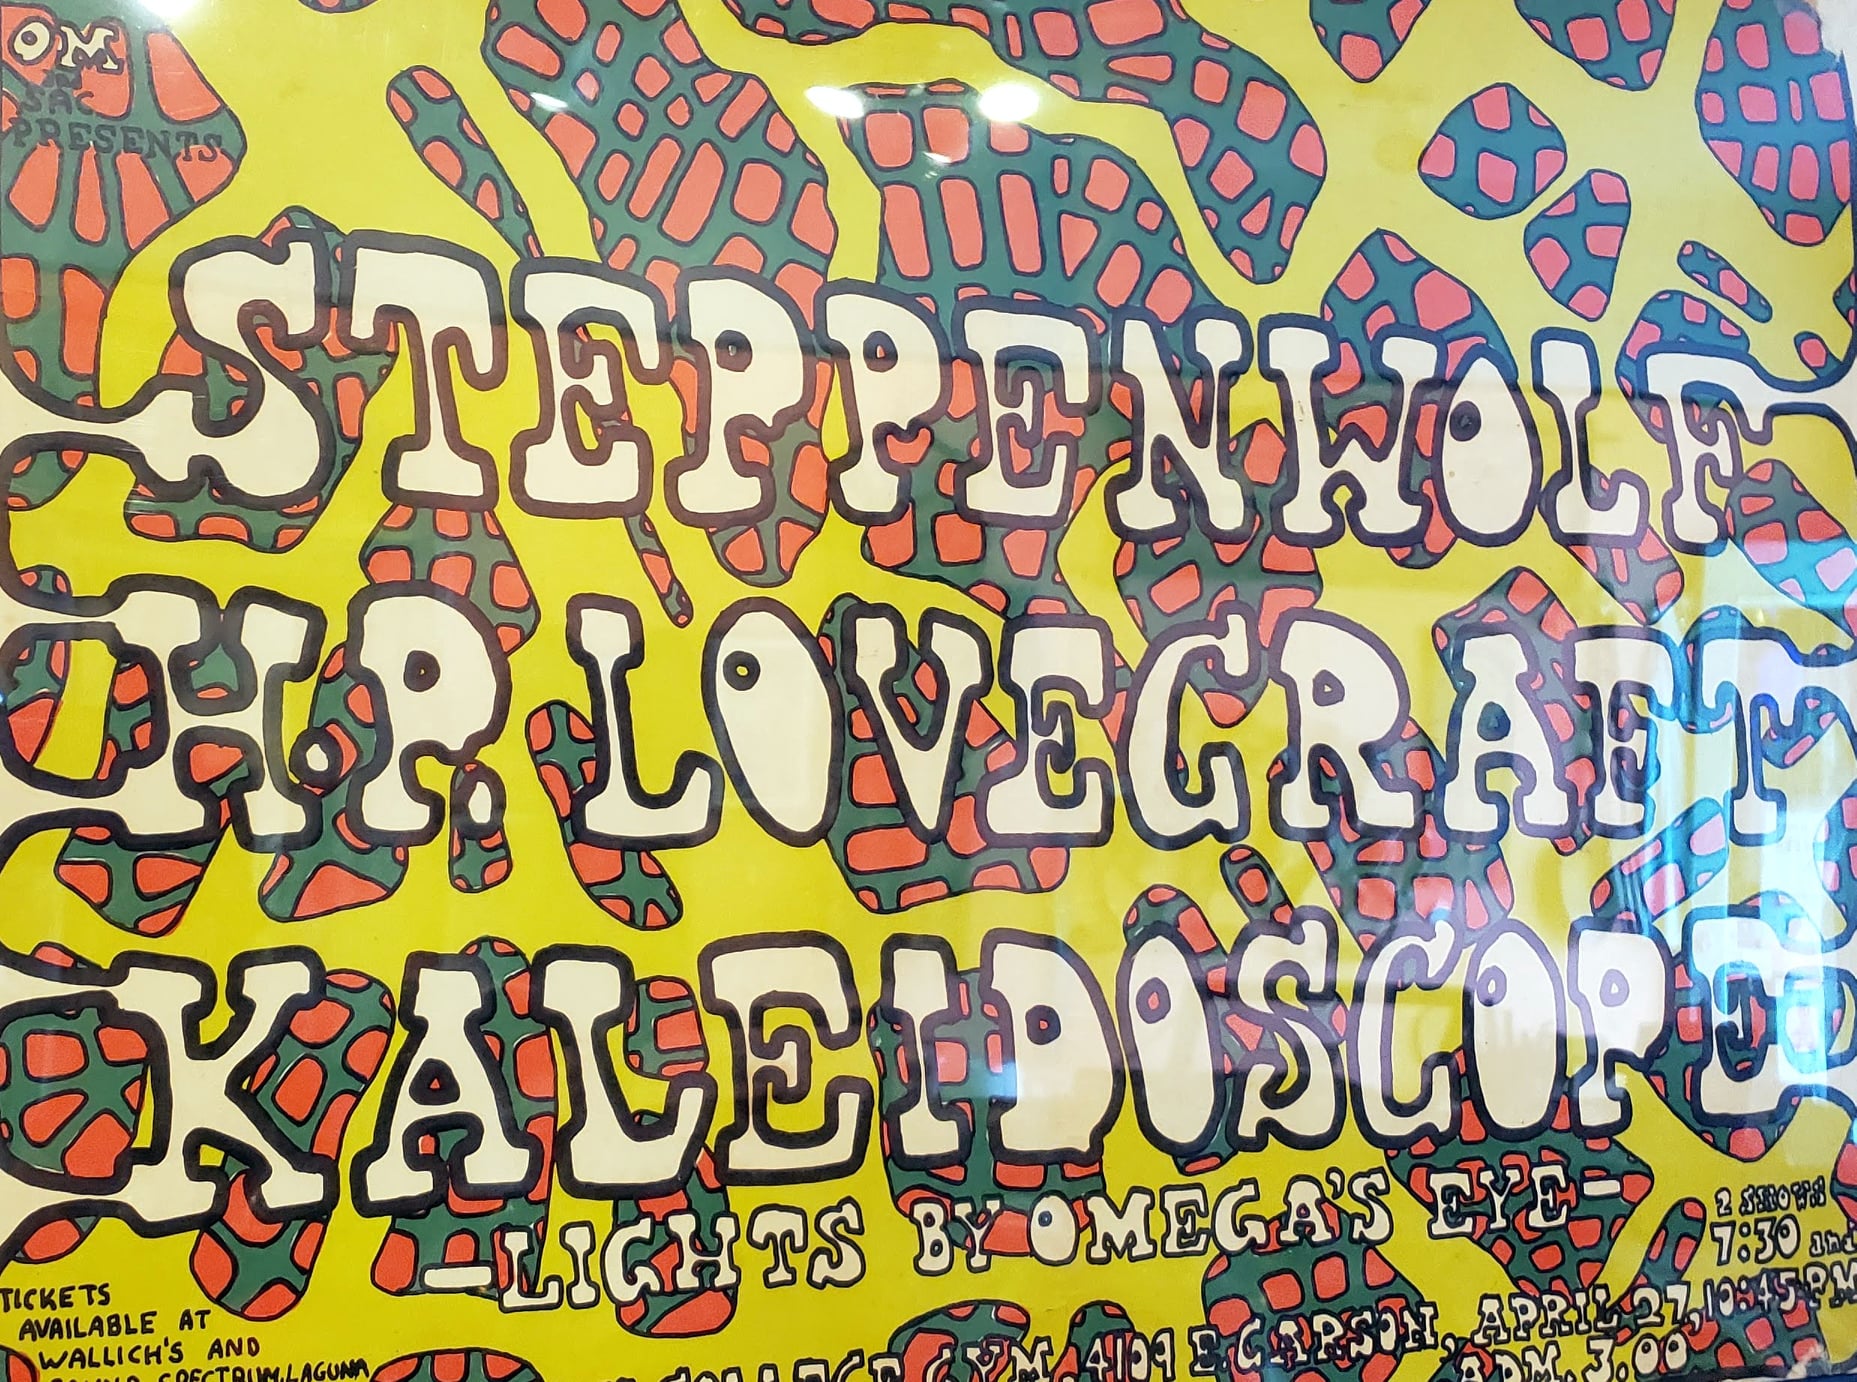 OM
IN
SAC
PRESENTS
STEPPENWOLF
H.P. LOVECRAFT
KALEIDOSCOPE
—LIGHTS BY OMEGA'S EYE—
2 SHOWS
7:30 and
10:45 PM
TICKETS
AVAILABLE AT
WALLICH'S AND
SOUND SPECTRUM, LAGUNA
COLLEGE GYM, 4109 E. CARSON, APRIL 27,
ADM. 3.00